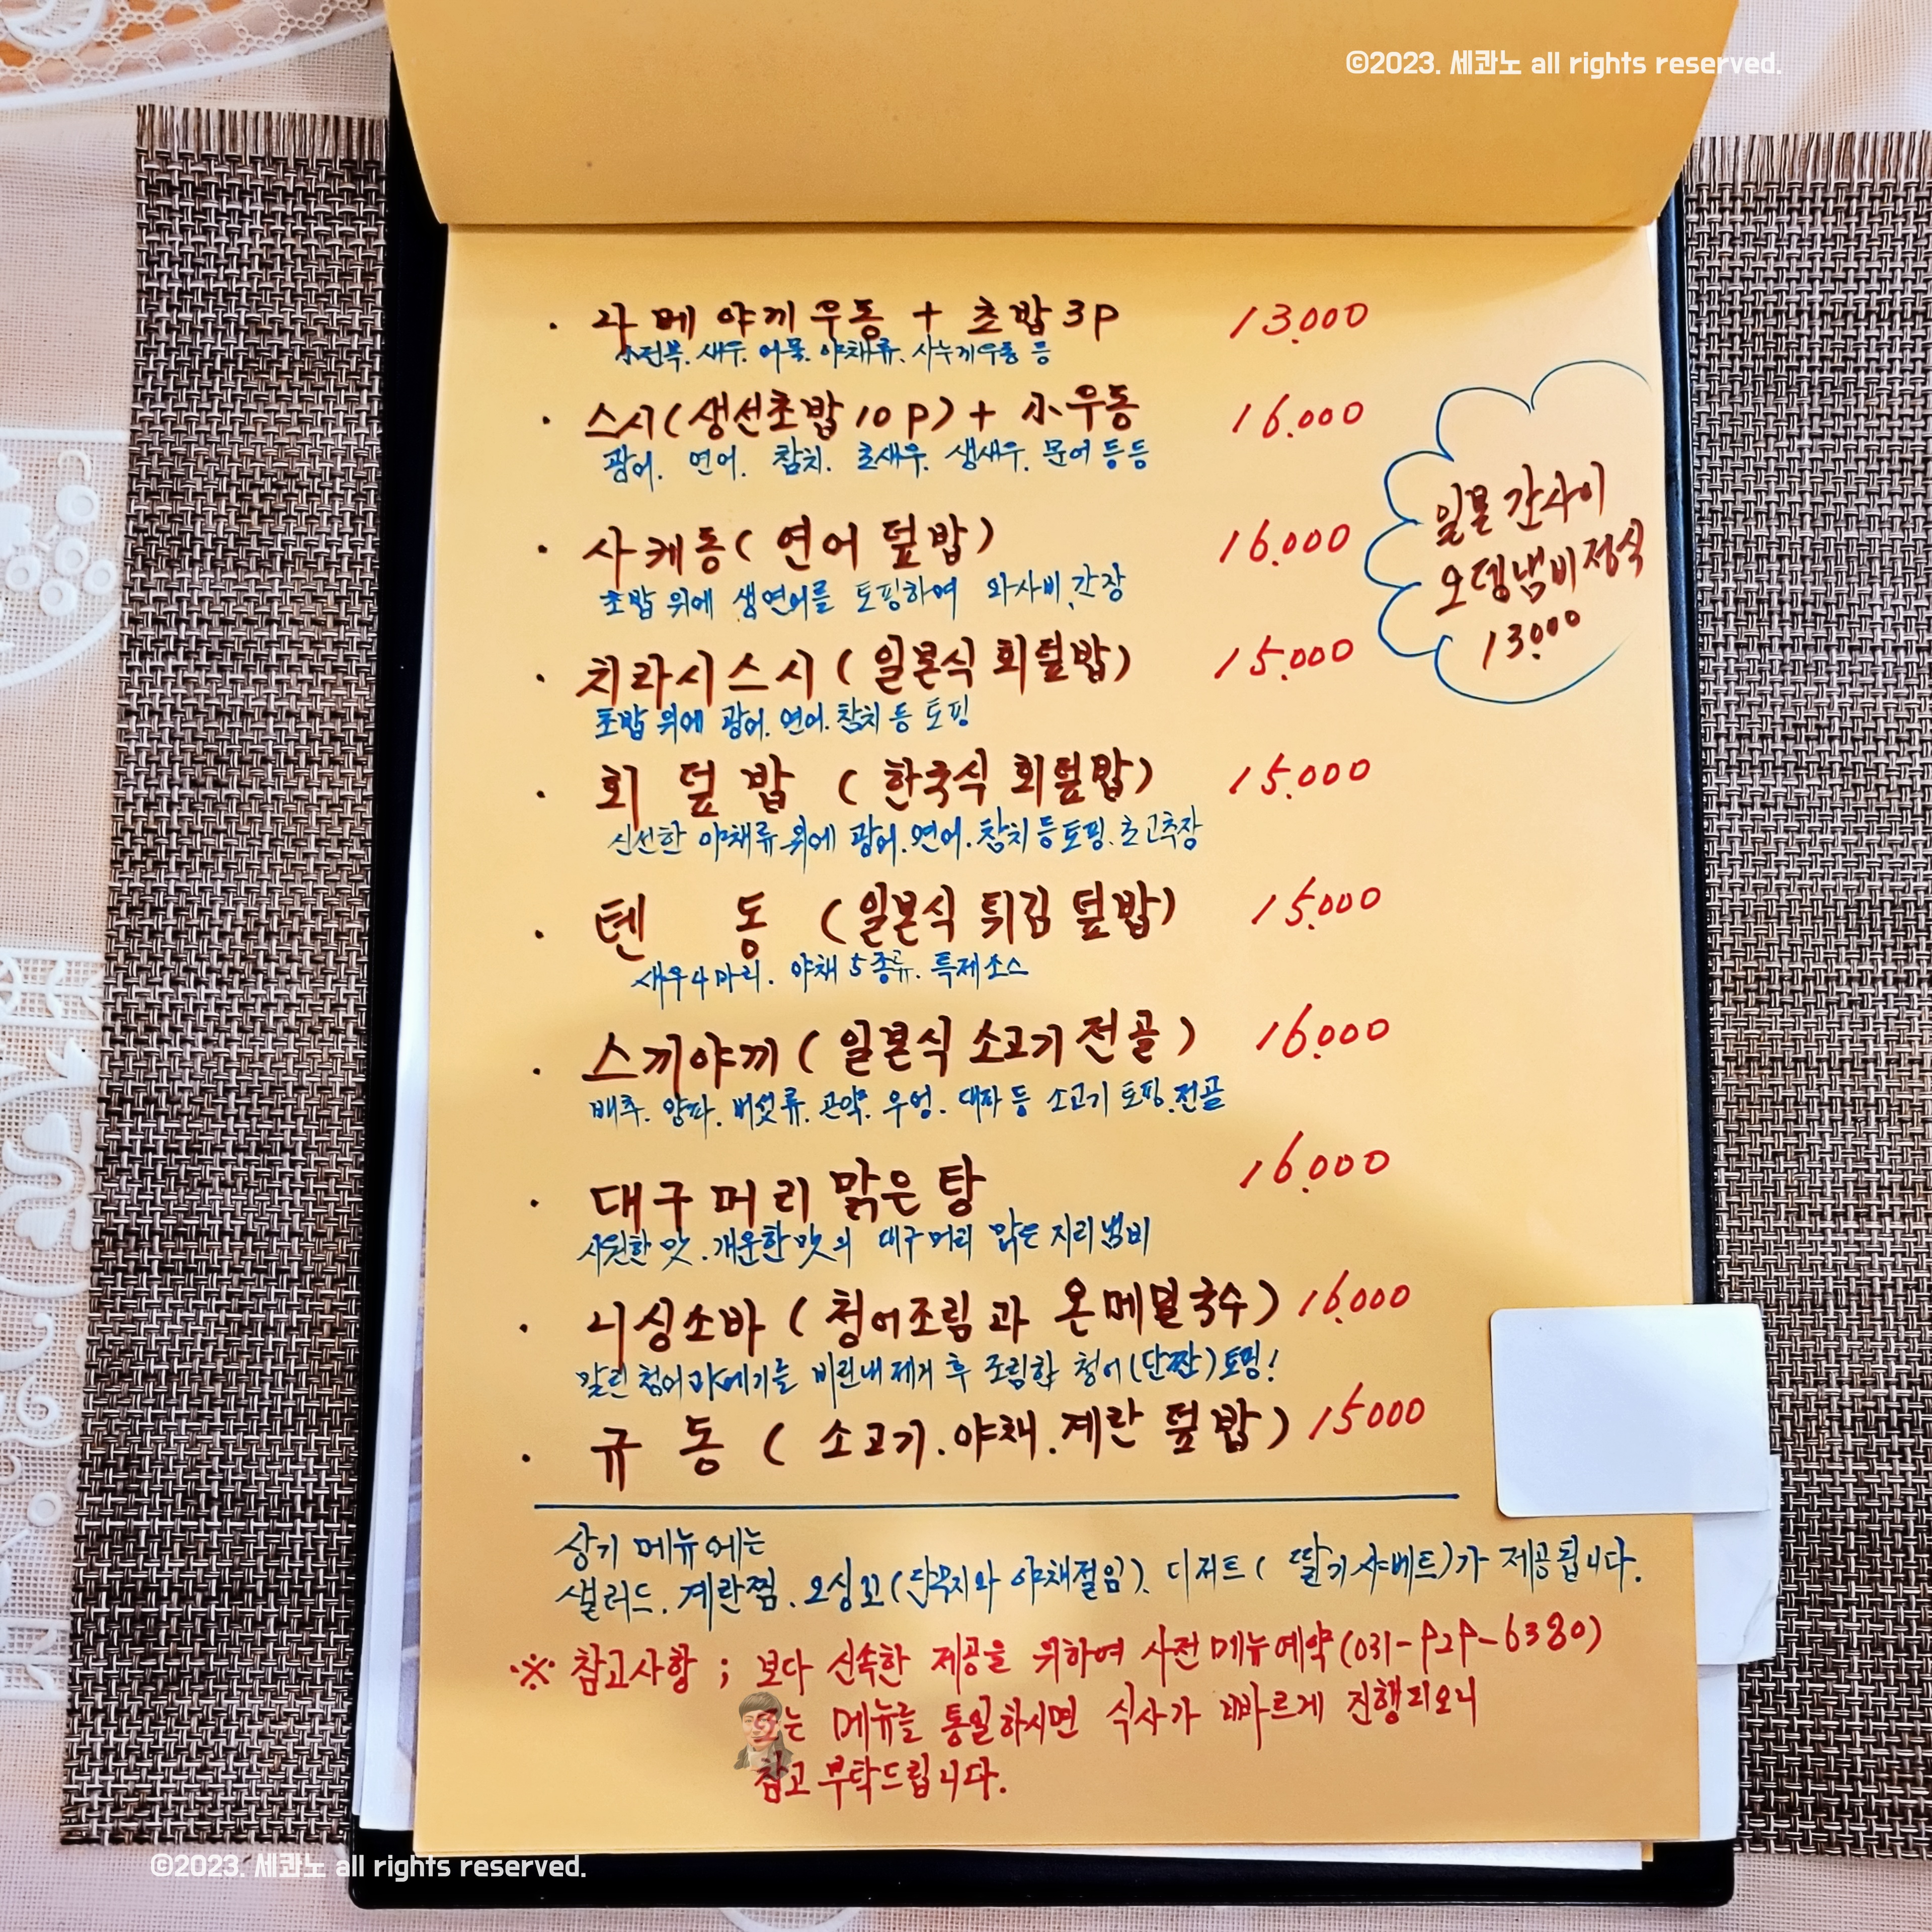 ©2023. 세콰노 all rights reserved.
· 라메야끼우동 + 초밥 3P 13.000
小전복. 새우. 어묵. 야채류. 사누끼우동 등
· 스시(생선초밥 10P) + 小우동 16.000
광어. 연어. 참치. 초새우. 생새우. 문어 등등
· 사케동(연어 덮밥) 16.000
초밥 위에 생연어를 토핑하여 와사비, 간장
일본 간사이
오뎅냄비정식
13.000
· 치라시스시(일본식 회덮밥) 15.000
초밥 위에 광어. 연어. 참치 등 토핑
· 회 덮 밥 (한국식 회덮밥) 15.000
신선한 야채류 위에 광어. 연어. 참치 등 토핑. 초고추장
· 텐 동 (일본식 튀김 덮밥) 15.000
새우 4마리. 야채 5종류. 특제소스
· 스끼야끼(일본식 소고기 전골) 16.000
배추. 양파. 버섯류. 곤약. 우엉. 대파 등 소고기 토핑. 전골
· 대구 머리 맑은 탕 16.000
시원한 맛. 개운한 맛의 대구머리 맑은 지리냄비
· 니싱소바(청어조림과 온메밀국수) 16.000
말린 청어 과메기를 비린내 제거 후 조림한 청어(단짠)토핑!
· 규 동 (소고기. 야채. 계란 덮밥) 15000
상기 메뉴에는
샐러드. 계란찜. 오싱꼬(단무지와 야채절임). 디저트(딸기샤베트)가 제공됩니다.
※ 참고사항 ; 보다 신속한 제공을 위하여 사전 메뉴예약(031-929-6380)
또는 메뉴를 통일하시면 식사가 빠르게 진행되오니
참고 부탁드립니다.
©2023. 세콰노 all rights reserved.